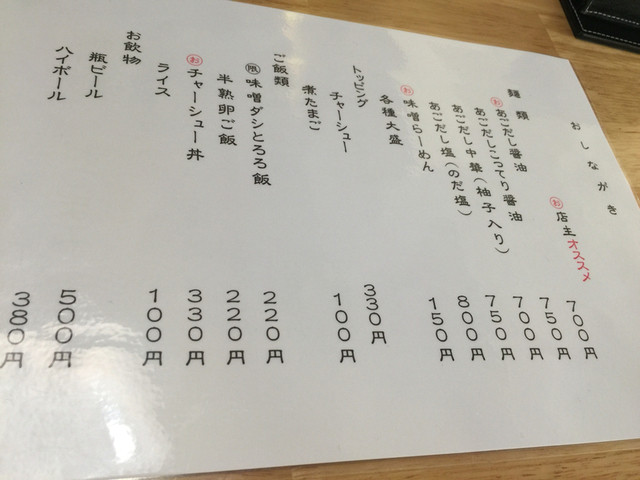 おしながき
お 店主オススメ
麺類
お あごだし醤油 700円
あごだしこってり醤油 750円
あごだし中華(柚子入り) 700円
あごだし塩(のだ塩) 750円
お 味噌らーめん 800円
各種大盛 150円
トッピング
チャーシュー 330円
煮たまご 100円
ご飯類
限 味噌ダシとろろ飯 220円
半熟卵ご飯 220円
お チャーシュー丼 330円
ライス 100円
お飲物
瓶ビール 500円
ハイボール 380円